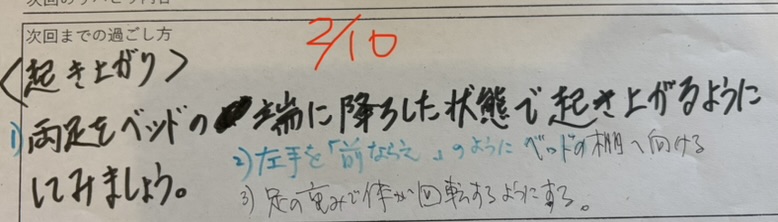 次回までの過ごし方
2/10
<起き上がり>
1) 両足をベッドの端に降ろした状態で起き上がるように
してみましょう。
2) 左手を「前ならえ」のようにベッドの柵へ向ける
3) 足の重みで体が回転するようにする。